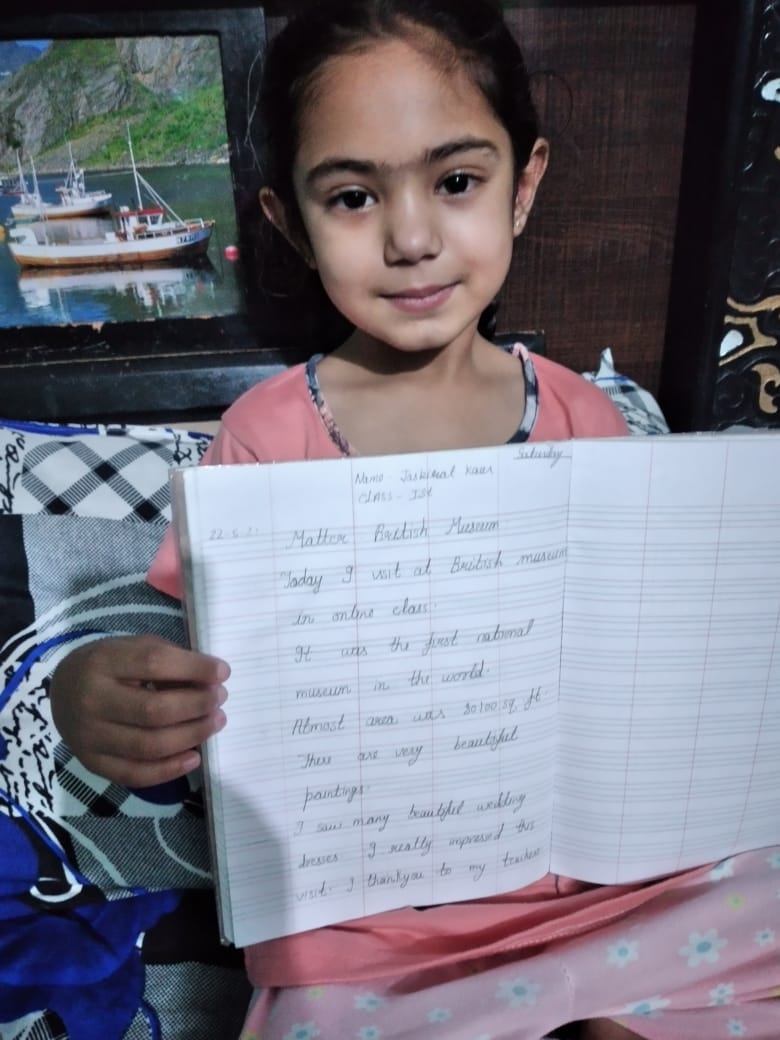 Saturday
Name - Jaskirat Kaur
CLASS - Ist
Matter British Museum
Today I visit at British museum
in online class.
It was the first national
museum in the world.
Almost area was 80100 sq. ft.
There are very beautiful
paintings.
I saw many beautiful wedding
dresses I really impressed this
visit. I thankyou to my teacher